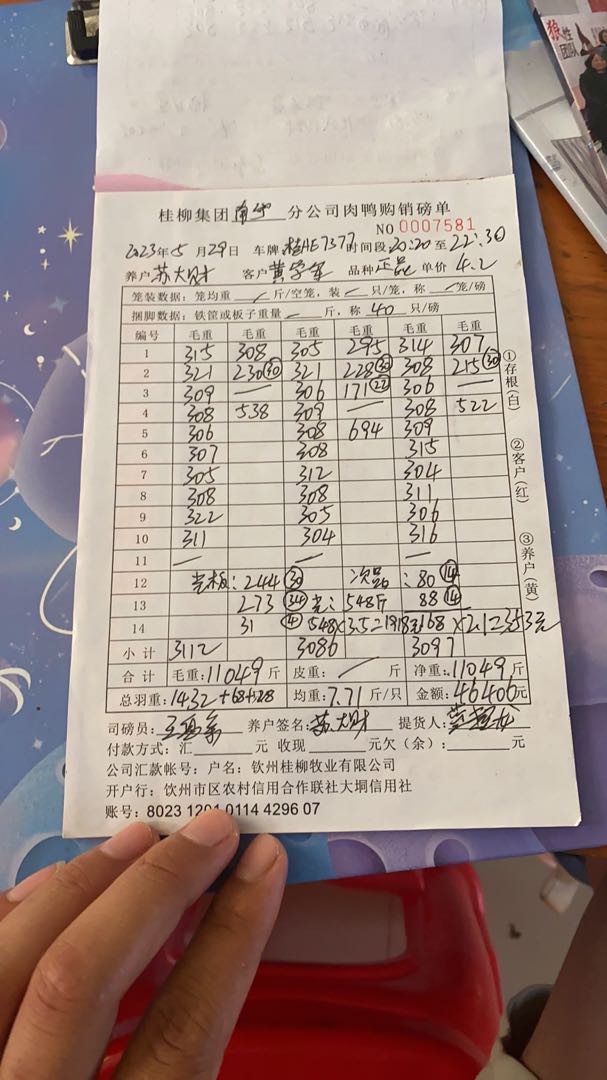 狼性
团队
桂柳集团南宁分公司肉鸭购销磅单
NO 0007581
2023年5月29日 车牌桂AE7377时间段20:20至22:30
养户苏大财 客户黄学军 品种正品 单价4.2
笼装数据:笼均重/斤/空笼,装/只/笼,称/笼/磅
捆脚数据:铁筐或板子重量/斤,称40只/磅
编号 毛重 毛重 毛重 毛重 毛重 毛重
1 315 308 305 295 314 307
2 321 230(30) 321 228(30) 308 215(30)
3 309 — 306 171(22) 306 —
4 308 538 309 — 308 522
5 306 308 694 309
6 307 308 315
7 305 312 304
8 308 308 311
9 322 305 306
10 311 304 316
11 — — —
12 244(30) 次品:80(14)
13 273(34) 548斤 88(14)
14 31(4) 548×3.5=1918元 168×2.1=353元
小计 3112 3086 3097
合计 毛重:11049斤 皮重:/斤 净重:11049斤
总羽重:1432+68+28 均重:7.71斤/只 金额:46406元
司磅员: 养户签名:苏大财 提货人:
付款方式:汇 元 收现 元欠(余): 元
公司汇款帐号:户名:钦州桂柳牧业有限公司
开户行:钦州市区农村信用合作联社大垌信用社
账号:8023 1201 0114 4296 07
①存根(白)
②客户(红)
③养户(黄)